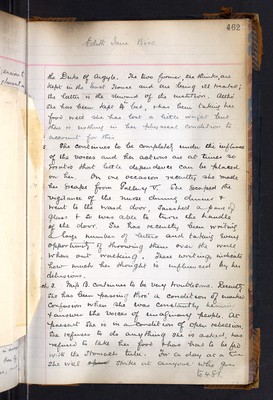 462
Edith Jane
the Duke of Argyle. The two former, she thinks, are
kept in the East House and are being ill treated;
the latter is the steward of the institution. Altho'
she has been kept in bed, & has been taking her
food well she has lost a little weight but
there is nothing in her physical condition to
account for this
She continues to be completely under the influence
of the voices and her actions are at times so
erratic that little dependence can be placed
on her. On one occasion recently she made
her escape from Gallery V. She escaped the
vigilance of the nurse during dinner &
went to the ward door, smashed a pane of
glass & so was able to turn the handle
of the door. She has recently been writing
a large number of letters and taking every
opportunity of throwing them over the wall
when out walking. These writings indicate
how much her thought is influenced by her
delusions.
Miss B. continues to be very troublesome. Recently
she has been passing thro' a condition of marked
confusion when she was constantly
& answer the voices of imaginary people. At
present she is in a condition of open rebellion.
She refuses to do anything she is asked, has
refused to take her food & has had to be fed
with the stomach tube. For a day at a time
she will strike at anyone who goes
to 481.